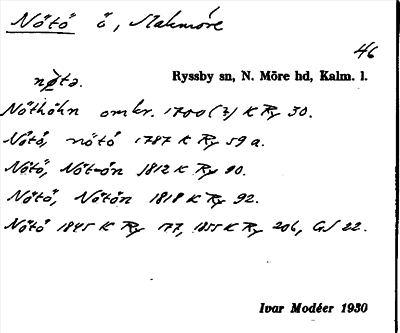 Nötö ö, Stakmöre
46
nøtə. Ryssby sn, N. Möre hd, Kalm. l.
Nöthöhn omkr. 1700(?) K Ry 30.
Nötö, nötö 1787 K Ry 59 a.
Nötö, Nöt-ön 1812 K Ry 90.
Nötö, Nötön 1818 K Ry 92.
Nötö 1845 K Ry 177, 1855 K Ry 206, GS 22.
Ivar Modéer 1930